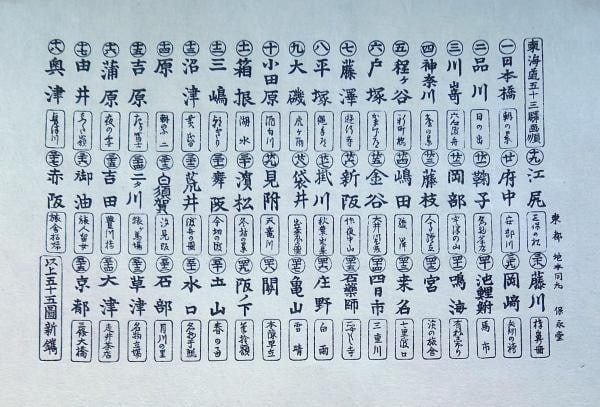 東海道五十三驛画順
一 日本橋 朝の景
二 品川 日の出
三 川嵜 六合渡舟
四 神奈川 臺の景
五 程ヶ谷 新町橋
六 戸塚
七 藤澤 遊行寺
八 平塚 縄手道
九 大磯 虎ヶ雨
十 小田原 酒匂川
十一 箱根 湖水
十二 三嶋
十三 沼津 黄昏
十四 原
十五 吉原
十六 蒲原 夜の雪
十七 由井
十八 奥津 興津川
十九 江尻
廿 府中 安部川
廿一 鞠子 名物茶店
廿二 岡部 宇津の山
廿三 藤枝 人馬継立
廿四 嶋田
廿五 金谷 大井川遠岸
廿六 新阪 佐夜中山
廿七 掛川 秋葉山遠望
廿八 袋井 出茶屋
廿九 見附 天竜川
三十 濱松 冬枯の景
三十一 舞阪 今切の景
三十二 荒井 渡舟の景
三十三 白須賀 汐見阪
三十四 二タ川 猿ヶ馬場
三十五 吉田 豊川橋
三十六 御油 旅人留女
三十七 赤阪 旅舎招婦
東都 地本問丸 保永堂
三十八 藤川 棒鼻
三十九 岡﨑 矢矧の橋
四十 池鯉鮒 馬市
四十一 鳴海 有松しぼり
四十二 宮
四十三 桒名 七里渡口
四十四 四日市 三重川
四十五 石藥師
四十六 庄野 白雨
四十七 亀山 雪晴
四十八 關 本陣早立
四十九 阪ノ下 筆捨嶺
五十 土山 春の雨
五十一 水口 名物干瓢
五十二 石部 目川の里
五十三 草津 名物立場
五十四 大津 走井茶店
五十五 京都 三條大橋
以上五十五圖新鐫